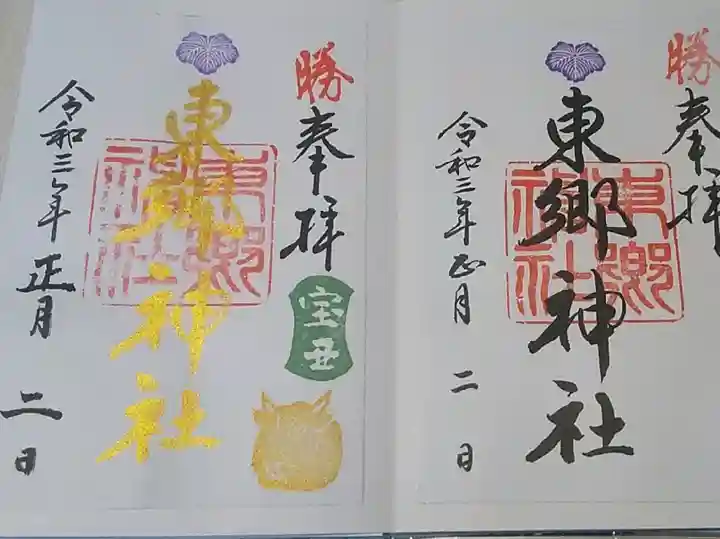 勝
奉拝
東郷神社
東郷神社
令和三年正月二日
勝
奉拝
東郷神社
東郷神社
宝丑
令和三年正月二日